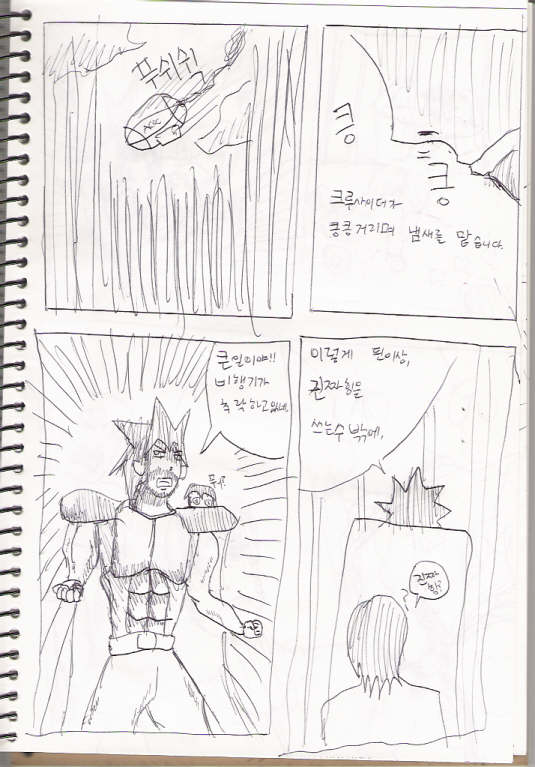 푸쉬쉭
킁
킁
크루사이더가
킁킁거리며 냄새를 맡습니다.
큰일이야!!
비행기가
추락하고있네.
이렇게 된이상,
진짜힘을
쓰는수밖에,
푸쉬
진짜
힘?